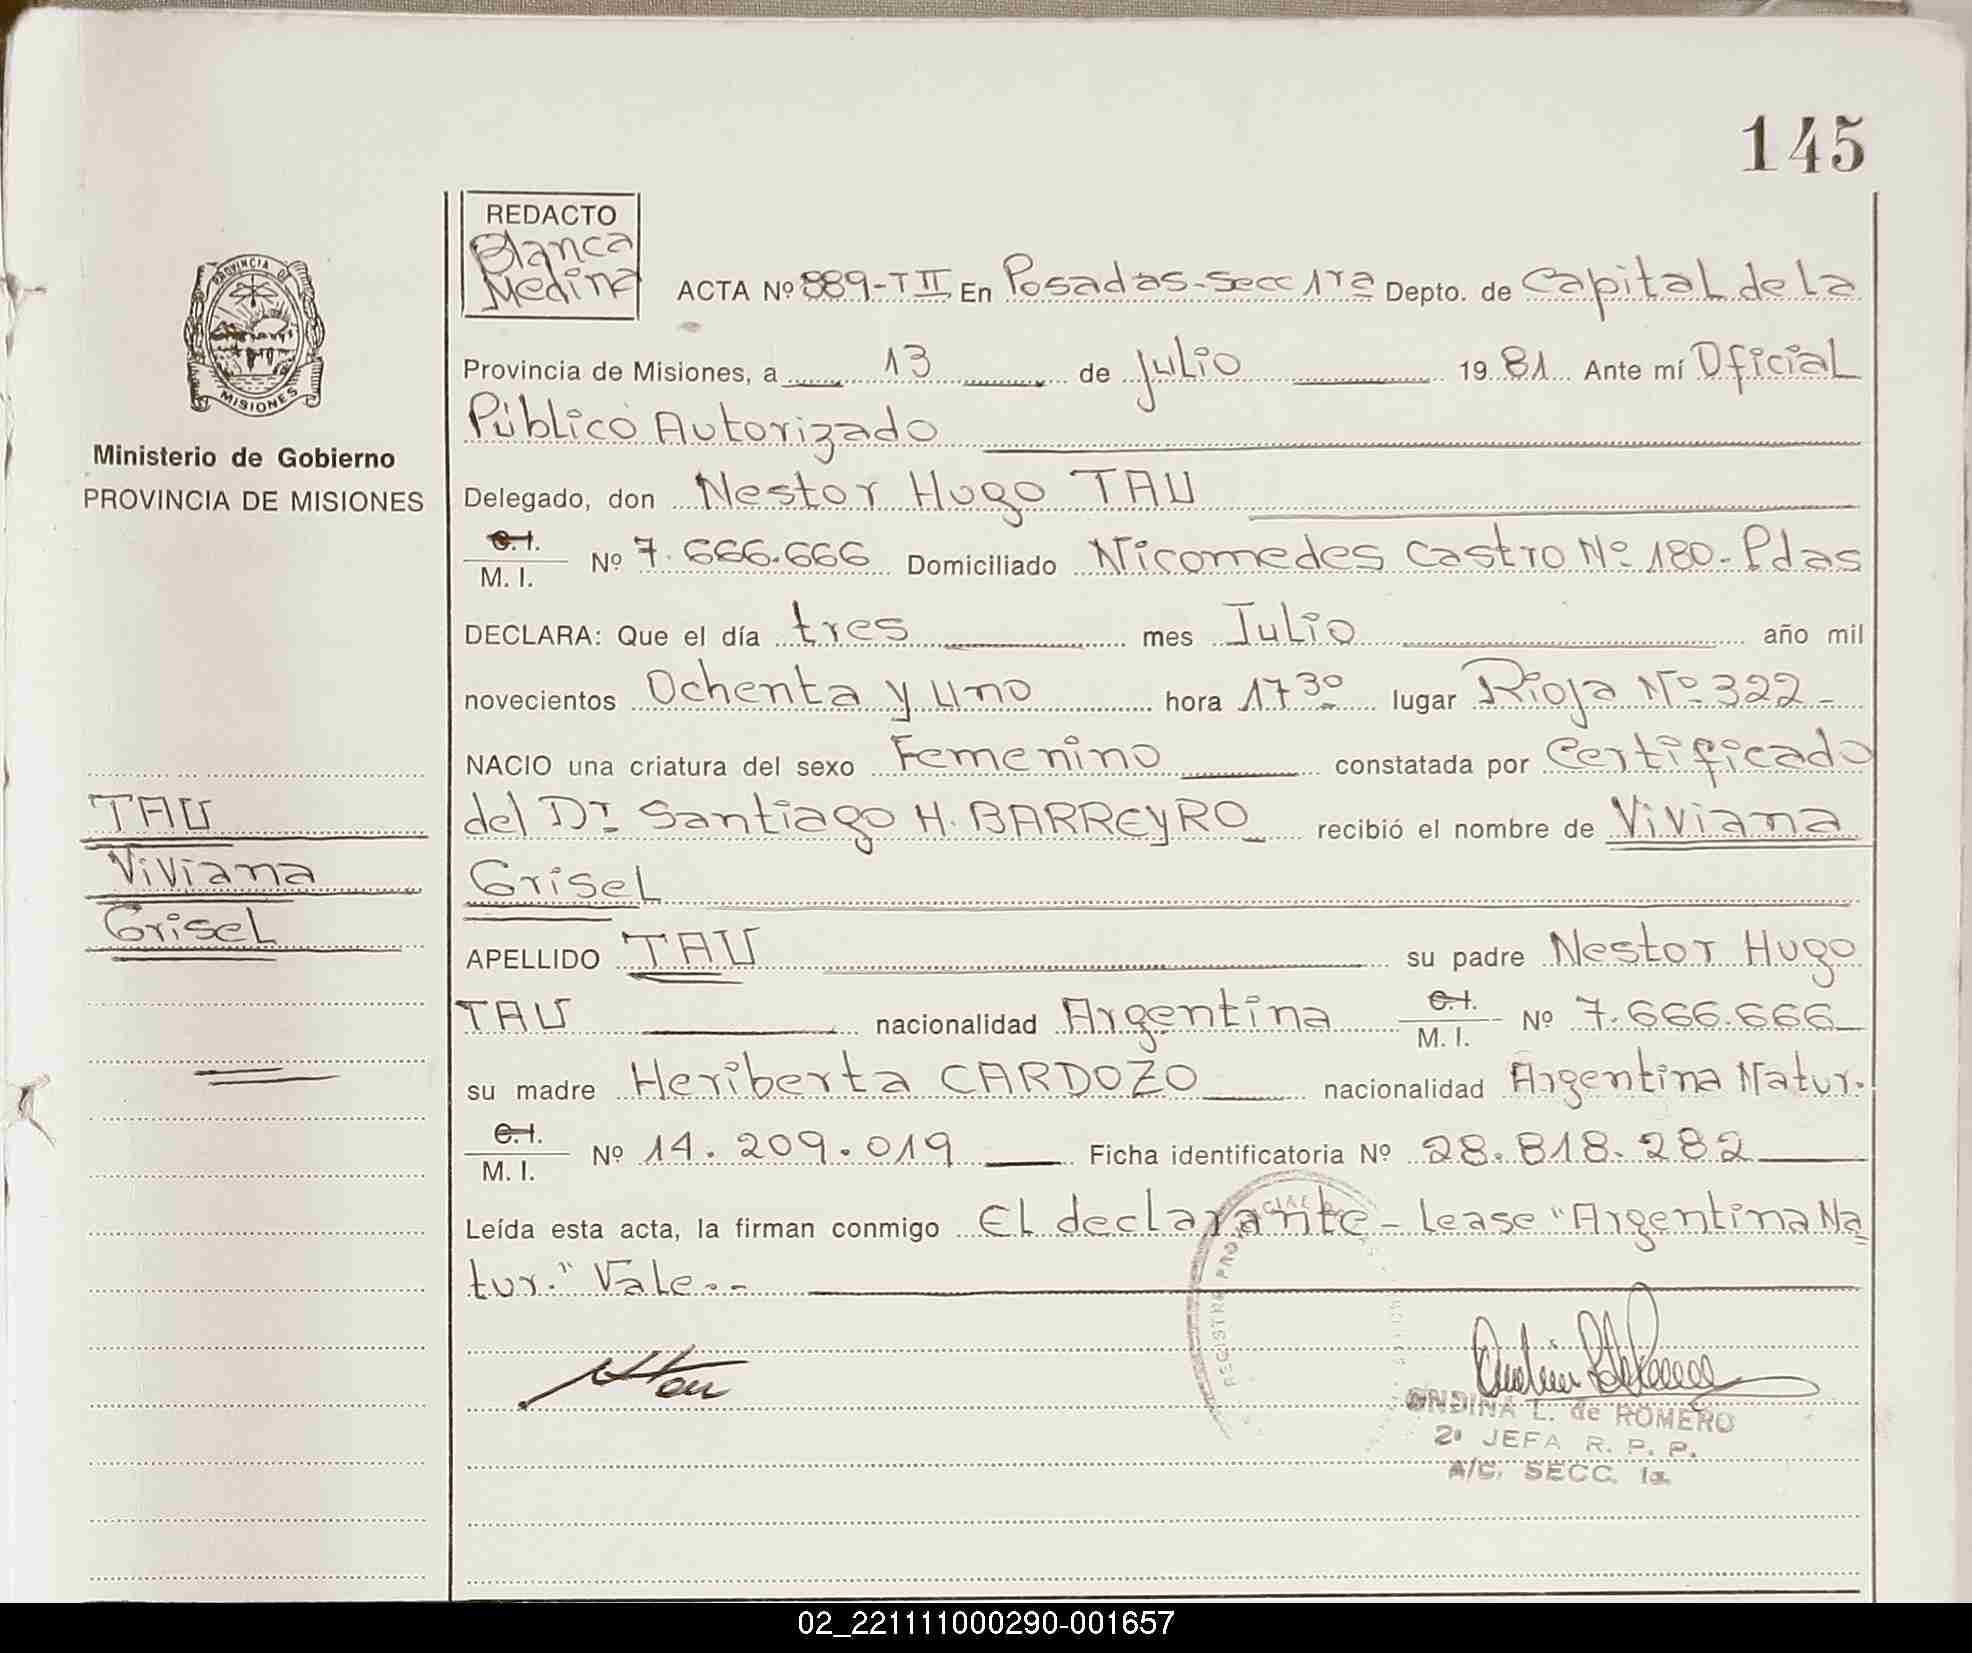 145
REDACTO
Blanca
Medina
ACTA Nº 889-T II En Posadas-Secc 1ra Depto. de Capital de la
Provincia de Misiones, a 13 de Julio 1981 Ante mí Oficial
Público Autorizado
Delegado, don Nestor Hugo TAU
C.I. / M. I. Nº 7.666.666 Domiciliado Nicomedes Castro Nº 180-Pdas
DECLARA: Que el día tres mes Julio año mil
novecientos Ochenta y uno hora 17³⁰ lugar Rioja Nº 322-
NACIO una criatura del sexo Femenino constatada por Certificado
del Dr. Santiago H. BARREYRO recibió el nombre de Viviana
Grisel
APELLIDO TAU su padre Nestor Hugo
TAU nacionalidad Argentina C.I. / M. I. Nº 7.666.666
su madre Heriberta CARDOZO nacionalidad Argentina Natur.
C.I. / M. I. Nº 14.209.019 Ficha identificatoria Nº 28.818.282
Leída esta acta, la firman conmigo El declarante - Lease "Argentina Na
tur." Vale.-
PROVINCIA DE
MISIONES
Ministerio de Gobierno
PROVINCIA DE MISIONES
TAU
Viviana
Grisel
REGISTRO PROVINCIAL
ONDINA L. de ROMERO
2º JEFA R. P. P.
A/C. SECC. 1a.
02_221111000290-001657